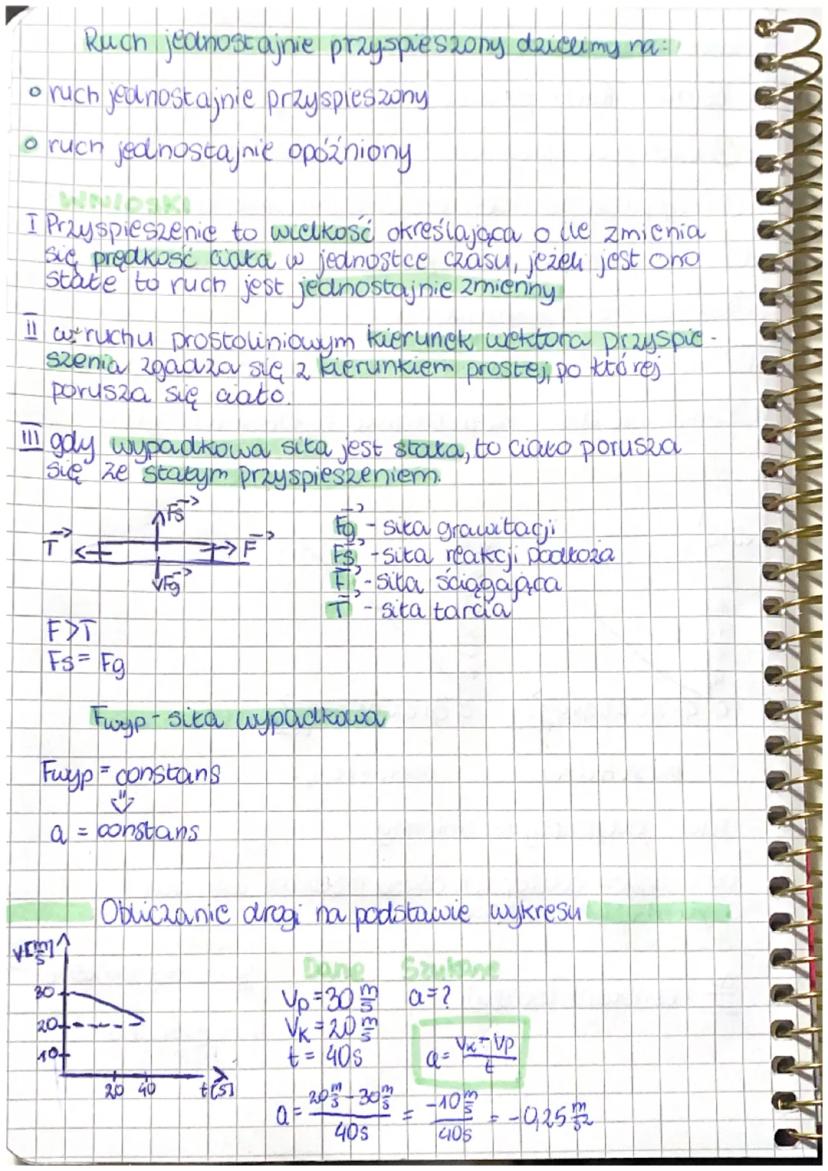 Ruch jednostajnie przyspieszony dzielimy na:
o ruch jednostajnie przyspieszony
o ruch jednostajnie opóźniony
WNIOSKI
I Przyspieszenie to wielkość określająca o ile zmienia
się prędkość ciała w jednostce czasu, jeżeli jest ono
stałe to ruch jest jednostajnie zmienny
II w ruchu prostoliniowym kierunek wektora przyspie-
szenia zgadza się z kierunkiem prostej, po której
porusza się ciało.
III gdy wypadkowa siła jest stała, to ciało porusza
się ze stałym przyspieszeniem.
Fs
T F
Fg
Fg - siła grawitacji
Fs - siła reakcji podłoża
F - siła ściągająca
T - siła tarcia
F>T
Fs = Fg
Fwyp - siła wypadkowa
Fwyp = constans
⇓
a = constans
Obliczanie drogi na podstawie wykresu
V[m/s]
30
20
10
20 40 t[s]
Dane Szukane
Vp = 30 m/s a = ?
Vk = 20 m/s
t = 40s
a = Vk - Vp / t
a = 20 m/s - 30 m/s / 40s = -10 m/s / 40s = -0,25 m/s2